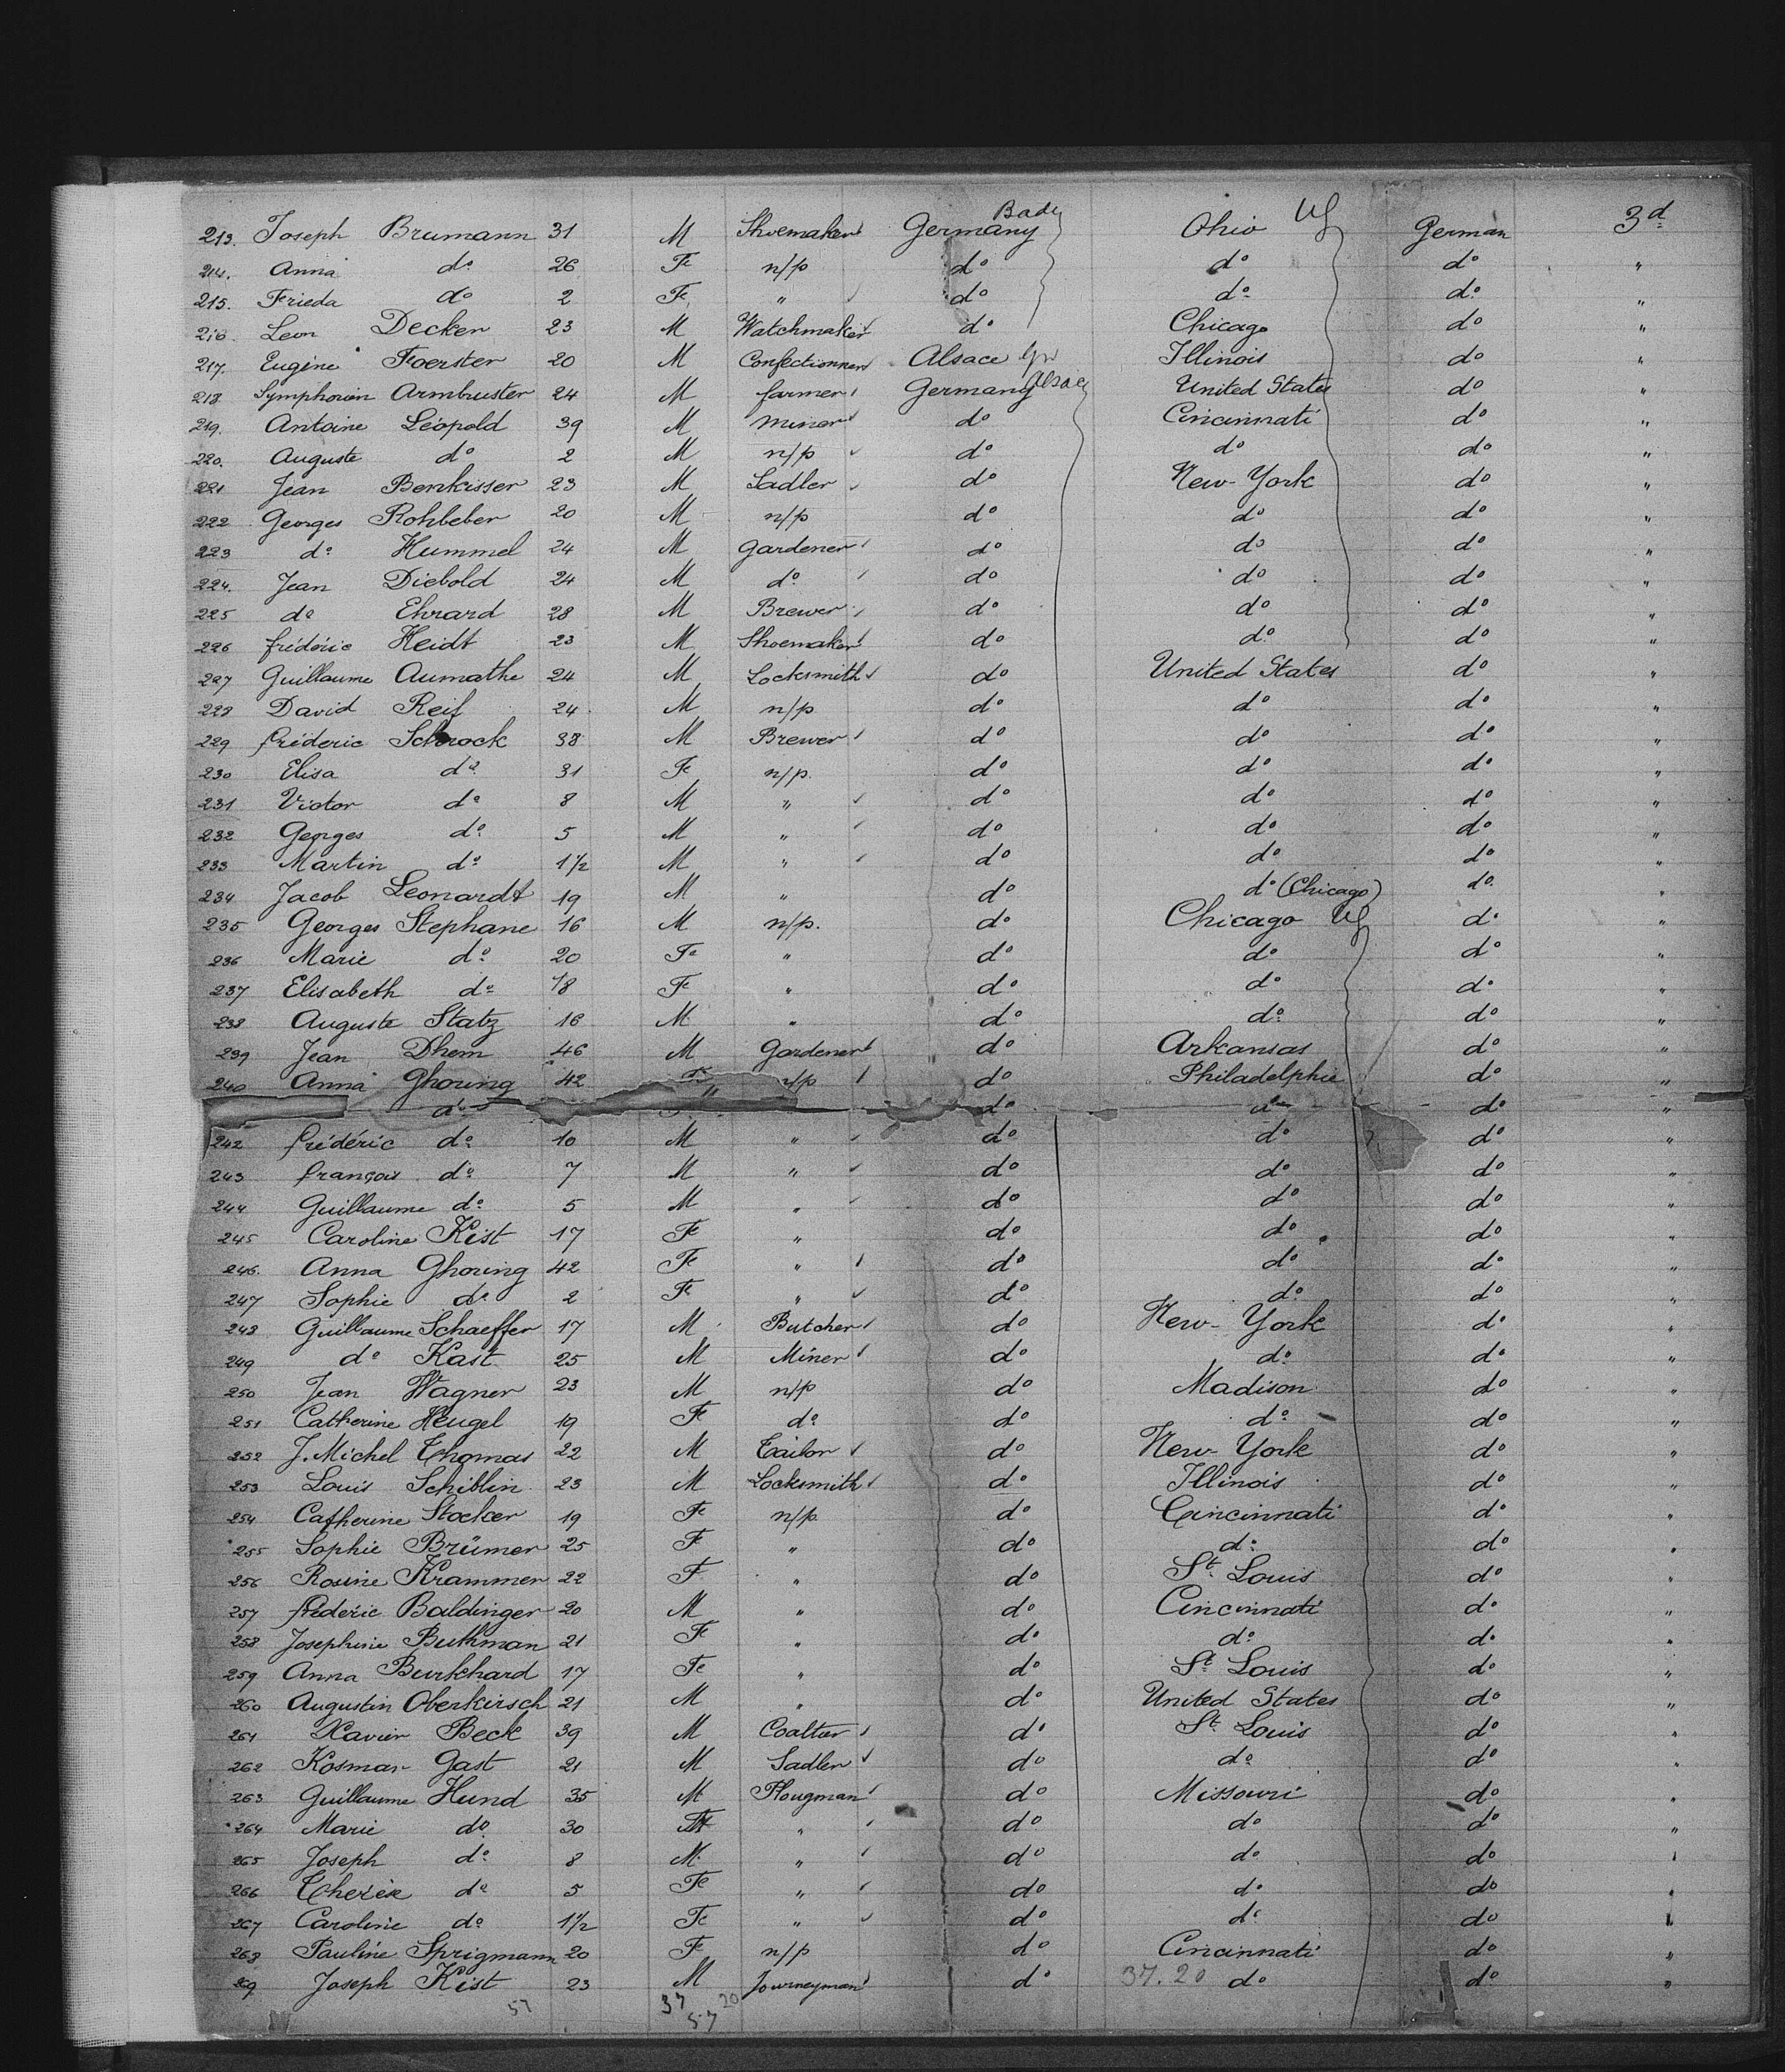 Bade
213. Joseph Brumann 31 M Shoemaker Germany Ohio German 3d
214. Anna do 26 Fe n/p do do do "
215. Frieda do 2 Fe " do do do "
216. Leon Decker 23 M Watchmaker do Chicago do "
217. Eugène Foerster 20 M Confectionner Alsace Illinois do "
218 Symphorien Armbruster 24 M farmer Germany Alsace United States do "
219. Antoine Léopold 39 M miner do Cincinnati do "
220. Auguste do 2 M n/p do do do "
221 Jean Benkisser 23 M Sadler do New-York do "
222 Georges Rohbeber 20 M n/p do do do "
223 do Hummel 24 M Gardener do do do "
224. Jean Diebold 24 M do do do do "
225 do Ehrard 28 M Brewer do do do "
226 frédéric Heidt 23 M Shoemaker do do do "
227 Guillaume Aumathe 24 M Locksmith do United States do "
228 David Reif 24 M n/p do do do "
229 fréderic Schrock 38 M Brewer do do do "
230 Elisa do 31 Fe n/p. do do do "
231 Victor do 8 M " do do do "
232 Georges do 5 M " do do do "
233 Martin do 1 1/2 M " do do do "
234 Jacob Leonardt 19 M " do do (Chicago) do "
235 Georges Stephane 16 M n/p. do Chicago do "
236 Marie do 20 Fe " do do do "
237 Elisabeth do 18 Fe " do do do "
238 Auguste Statz 16 M " do do do "
239 Jean Dhem 46 M Gardener do Arkansas do "
240 Anna Ghoring 42 Fe n/p do Philadelphie do "
do do do do "
242 frédéric do 10 M " do do do "
243 françois do 7 M " do do do "
244 Guillaume do 5 M " do do do "
245 Caroline Kist 17 Fe " do do do "
246. Anna Ghoring 42 Fe " do do do "
247 Sophie do 2 Fe " do do do "
248 Guillaume Schaeffer 17 M Butcher do New-York do "
249 do Kast 25 M Miner do do do "
250 Jean Wagner 23 M n/p do Madison do "
251 Catherine Heugel 19 Fe do do do do "
252 J. Michel Thomas 22 M Tailor do New-York do "
253 Louis Schiblin 23 M Locksmith do Illinois do "
254 Catherine Stocker 19 Fe n/p do Cincinnati do "
255 Sophie Brümer 25 F " do do do "
256 Rosine Krammer 22 F " do St Louis do "
257 fréderic Baldinger 20 M " do Cincinnati do "
258 Josephine Buthman 21 Fe " do do do "
259 Anna Burkhard 17 Fe " do St Louis do "
260 Augustin Oberkirsch 21 M " do United States do "
261 Xavier Beck 39 M do St Louis do "
262 Kosmar Gast 21 M Sadler do do do "
263 Guillaume Hund 35 M Plougman do Missouri do "
264 Marie do 30 Fe " do do do "
265 Joseph do 8 M " do do do "
266 Therèse do 5 Fe " do do do "
267 Caroline do 1 1/2 Fe " do do do "
268 Pauline Sprigmann 20 F n/p do Cincinnati do "
269 Joseph Kist 23 M Journeyman do 37.20 do do "
57 37 20
57